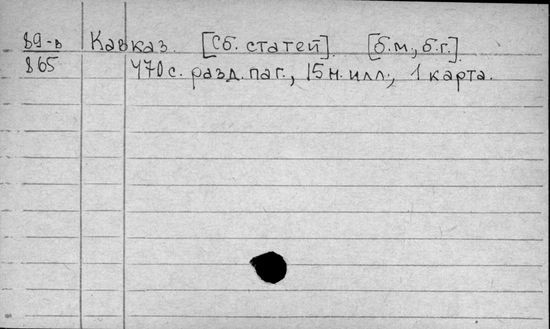 89-в Кавказ. [Сб. статей]. [б.м., б.г.]
865 470 с. разд. паг., 15 н. илл., 1 карта.